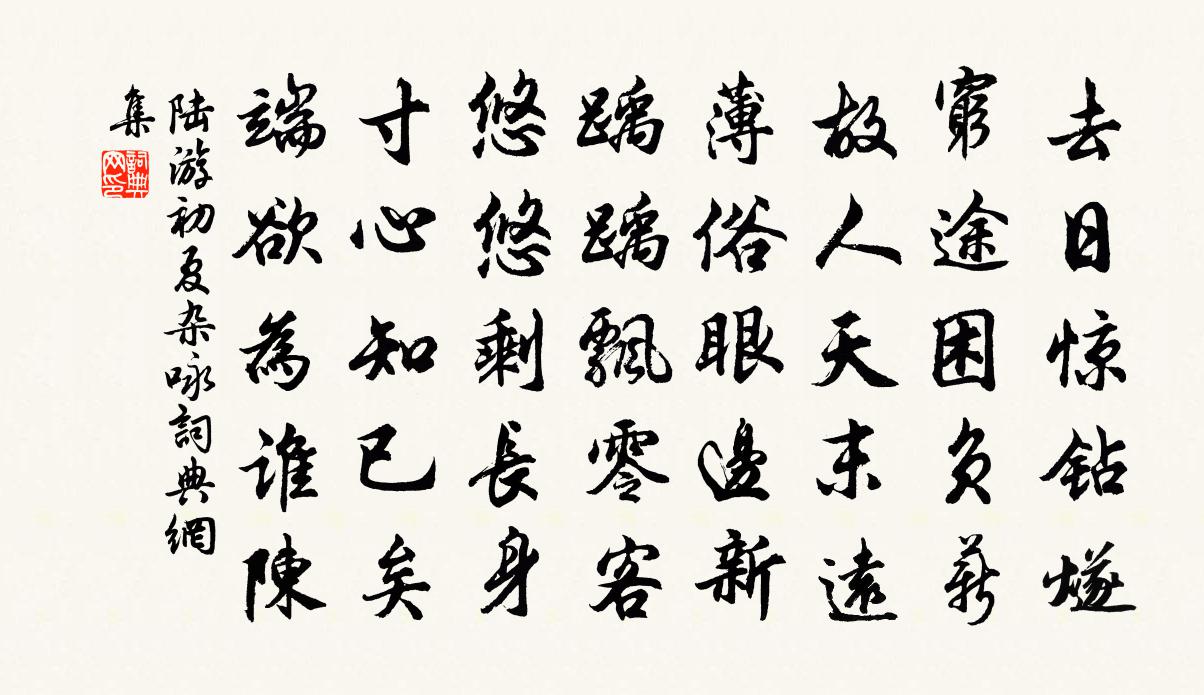 去日惊钻燧
窮途困负薪
故人天末遠
薄俗眼邊新
踽踽飄零客
悠悠剩長身
寸心知已矣
端欲為谁陳
陆游初夏杂咏詞典網
集
詞典
网印